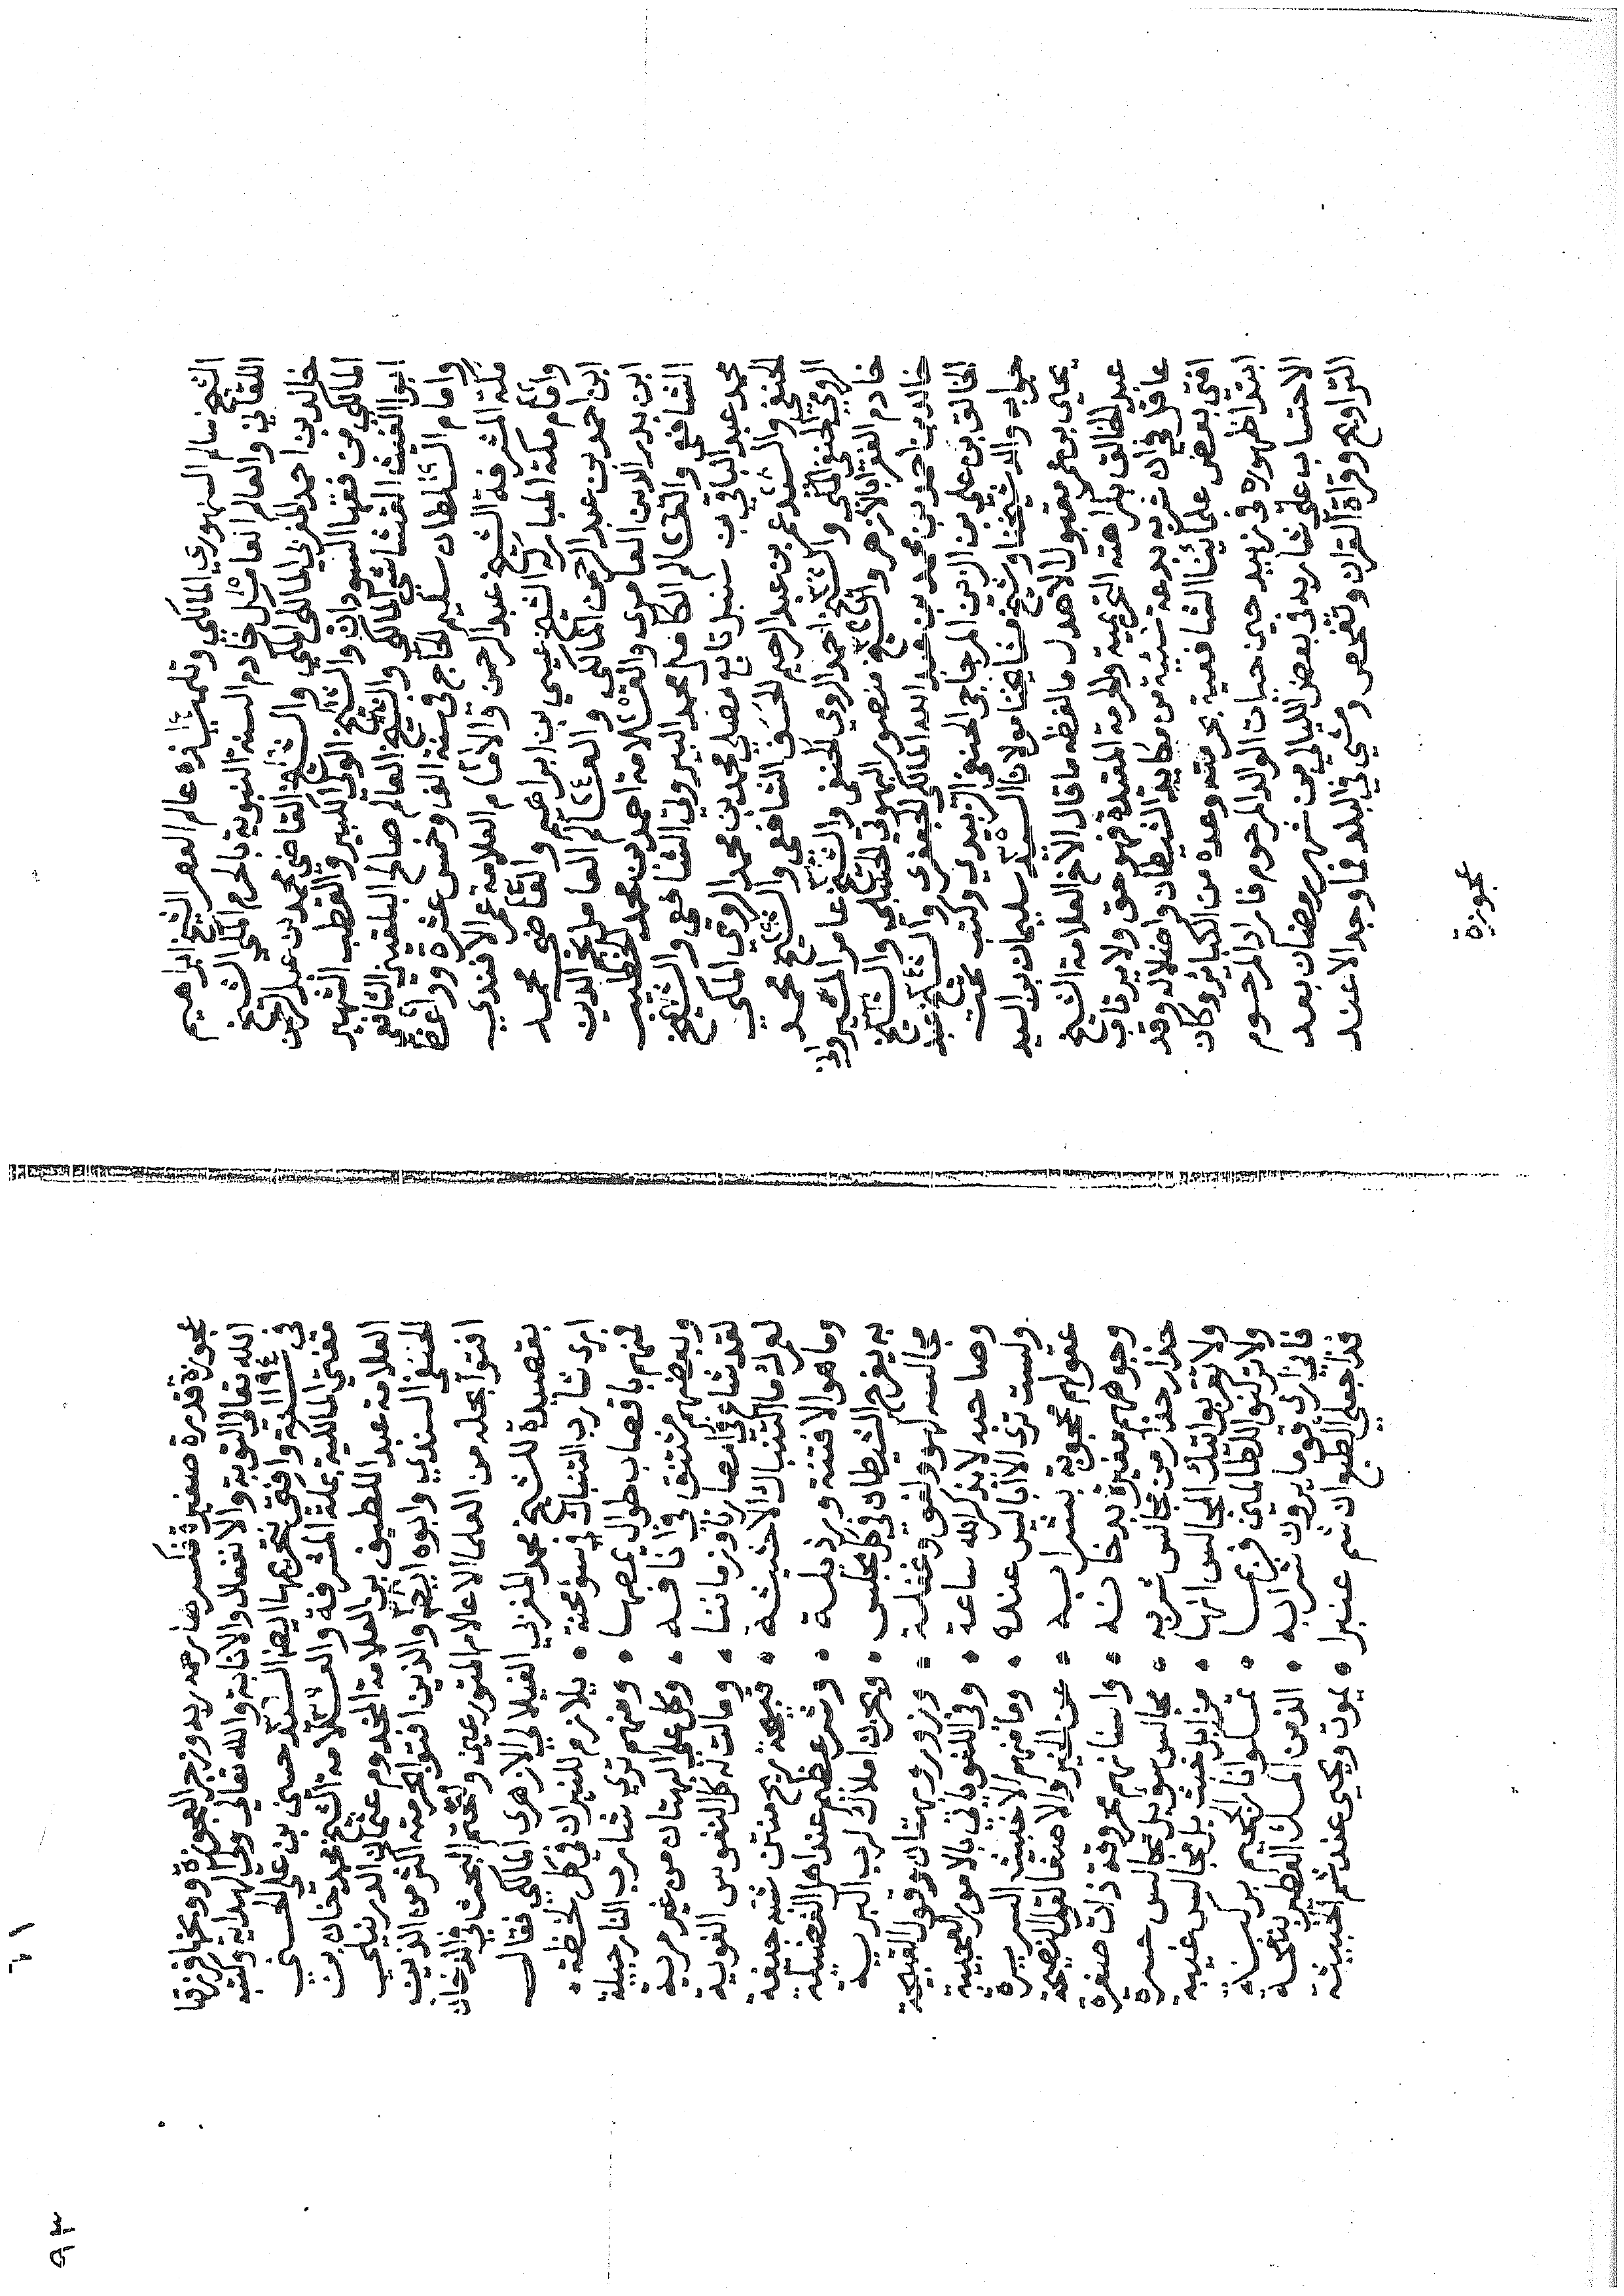 الشيخ سالم السنهوري المالكي وتلميذه عالم العصر الشيخ ابراهيم
اللقاني والعالم العامل خادم السنة النبوية بالحرم المكي الشيخ
خالد بن احمد المغربي المالكي المكي والشيخ القاضي محمد بن عبد الرحمن
المالكي من فقهاء السودان والشيخ الولي الكبير والقطب الشهير
ابو الغيث القشاشي المالكي والشيخ العالم صالح البلقيني الشافعي
وامام السلطان سليم الحاج في سنة الف وخمس عشرة وواعظ
مكة المشرفة الشيخ عبد الرحمن والامام العلامة عمر الافندي
وامام مكة المباركة الشيخ عيسى بن ابراهيم والقاضي محمد
ابن احمد بن عبد الرحمن المالكي والعالم العامل نجم الدين
ابن بدر الدين العامري والعلامة احمد بن محمد الخطيب
الشافعي والعالم الكامل محمد البيروتي الشافعي والشيخ
محمد عبد الباقي بن سنبل تابع مصلي محمد بن محمد الرومي المكي
الحنفي والسيد عمر بن عبد الرحيم الحسني الشافعي والشيخ محمد
الرومي الحنفي المكي والشيخ احمد الرومي الحنفي والشيخ عامر الشيرواني
خادم الفقراء بالازهر والشيخ منصور البهوتي الحنبلي والشيخ
خالد بن احمد بن محمد بن عبد الله المالكي الجعفري والشيخ عبد
الخالق بن علي بن الزين المزجاجي الحنفي الزبيدي وكتب تحت
جوابه والد شيخنا وشيخ مشايخنا مولانا السيد سليمان بن السيد
يحيى بن عمر مقبول الاهدل ما لفظه ما قال الاخ العلامة الشيخ
عبد الخالق بكراهته التحريمية والحرمة المقيدة فهو حق ولا يرتاب
عاقل في ان شربه بدعة سنية من مكايد الشيطان واضلاله وقد
افتى بعض علمائنا الشافعية بحرمته وعده من الكبائر وكان
ابتدا ظهوره في زبيد حين حيات الوالد المرحوم فاراد المرحوم
الاحتساب على شاربه في بعض الليالي من شهر رمضان بعد
التراويح وقراة القران وتفحص ومشى في البلد فما وجد الا عند
عجوزة
عجوزة قذرة صغيرة فكسرها رحمه ربه وزجر العجوزة ووبخها وفرقها
الله تعالى التوبة والانفعال والانابة والله تعالى ولي الهداية وكتب
في سنة ١١٩٤ وافتى بتحريمها ايضا السيد حسين بن علي الحسني
مفتي المالكية بمكة المشرفة والعلامة الشيخ محمد حيات بن
العلامة عبد اللطيف بن العلامة المخدوم عثمان الدرنيلي
الحنفي السندي وابوه ايضا والذين افتوا بحرمته اكثر من الذين
افتوا بحله من العلماء الاعلام المتورعين ولنختم البحث في الدخان
بقصيدة للشيخ محمد المغربي الفيلالي الازهري المالكي فقال
ارى شارب التنباك في سوء محنة • يلازم للنيران في كل لحظة •
فمنهم باقصاب طوال يمصها • ومنهم ترى شارب النارجيلة
وبعضهم منتشق في انافه • وكل على البهتان من غير مرية
لقد شاع في امصارنا وزماننا • ومالت له كل النفوس الغوية
لعمرك ما التنباك الا خبيثة • قبيحة ريح منتن شبه جيفة
وما هو الا فتنة ورذيلة • وشر عظيم عند اهل الفضيلة
به يفرح الشيطان في كل مجلس • ويحزن املاك لرب البرية
مجالسه لهو ولغو وغفلة • وزور وبهتان وقول القبيحة
وصاحبه لا يذكر الله ساعة • وفي اللغو ياتي بالامور العجيبة
وليست ترى الا اباليس عنده • وما فيهم الا خبيث السريرة
عقولهم محجوبة بشرابه • عن الخير والاصغا لقول النصيحة
وجوههم مغبرة بدخانه • واسنانهم محروقة ذات صفرة
حذار حذار من مجالس شربه • مجالس سوء بل مجالس خسرة
ولا تقربوا تلك المجالس انها • مزابل خبث بل مجالس غيبة
ولا تركنوا للظالمين فربما • تمسكوا نار الجحيم بركبة
فاني ارى قوما يرون شرابه • الذ من المسك العطير بنفحة
فذا جعلي الطبع ان شم عنبرا • يموت ويحيى عند شم الخبيثة
٩٣